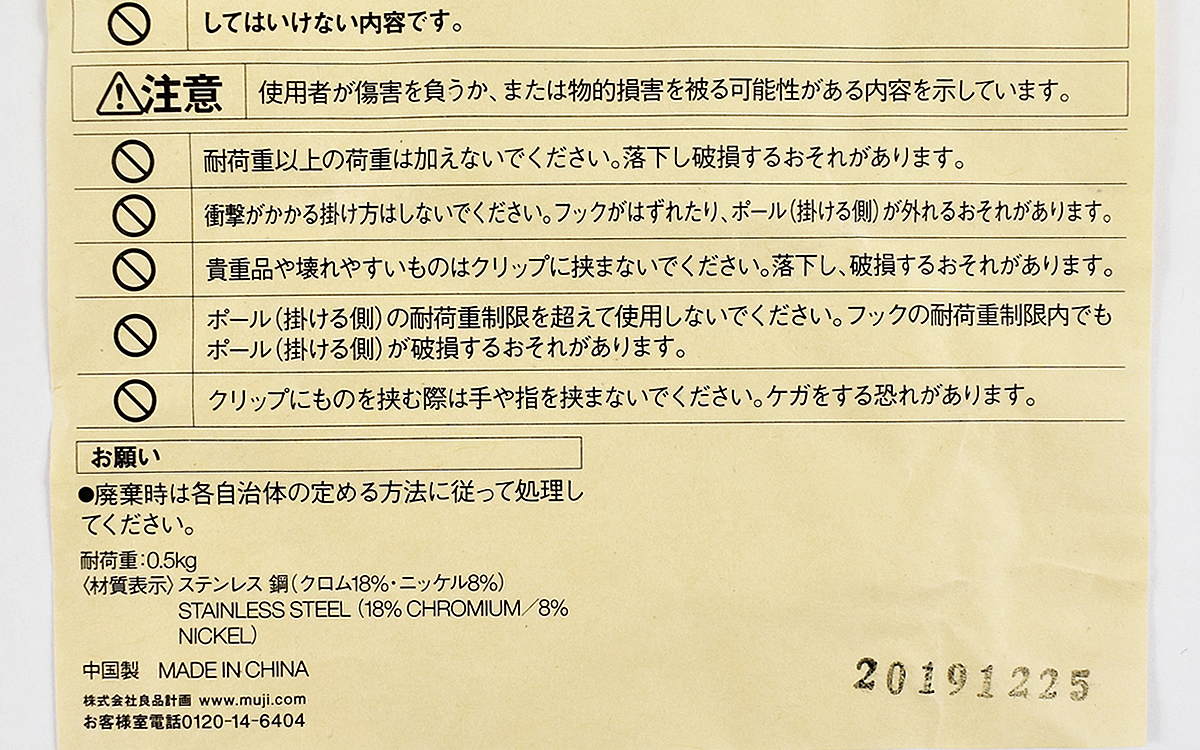 してはいけない内容です。
注意 使用者が傷害を負うか、または物的損害を被る可能性がある内容を示しています。
耐荷重以上の荷重は加えないでください。落下し破損するおそれがあります。
衝撃がかかる掛け方はしないでください。フックがはずれたり、ポール(掛ける側)が外れるおそれがあります。
貴重品や壊れやすいものはクリップに挟まないでください。落下し、破損するおそれがあります。
ポール(掛ける側)の耐荷重制限を超えて使用しないでください。フックの耐荷重制限内でも
ポール(掛ける側)が破損するおそれがあります。
クリップにものを挟む際は手や指を挟まないでください。ケガをする恐れがあります。
お願い
●廃棄時は各自治体の定める方法に従って処理し
てください。
耐荷重:0.5kg
〈材質表示〉ステンレス 鋼(クロム18%・ニッケル8%)
STAINLESS STEEL (18% CHROMIUM/8%
NICKEL)
中国製 MADE IN CHINA
株式会社良品計画 www.muji.com
お客様室電話0120-14-6404
20191225